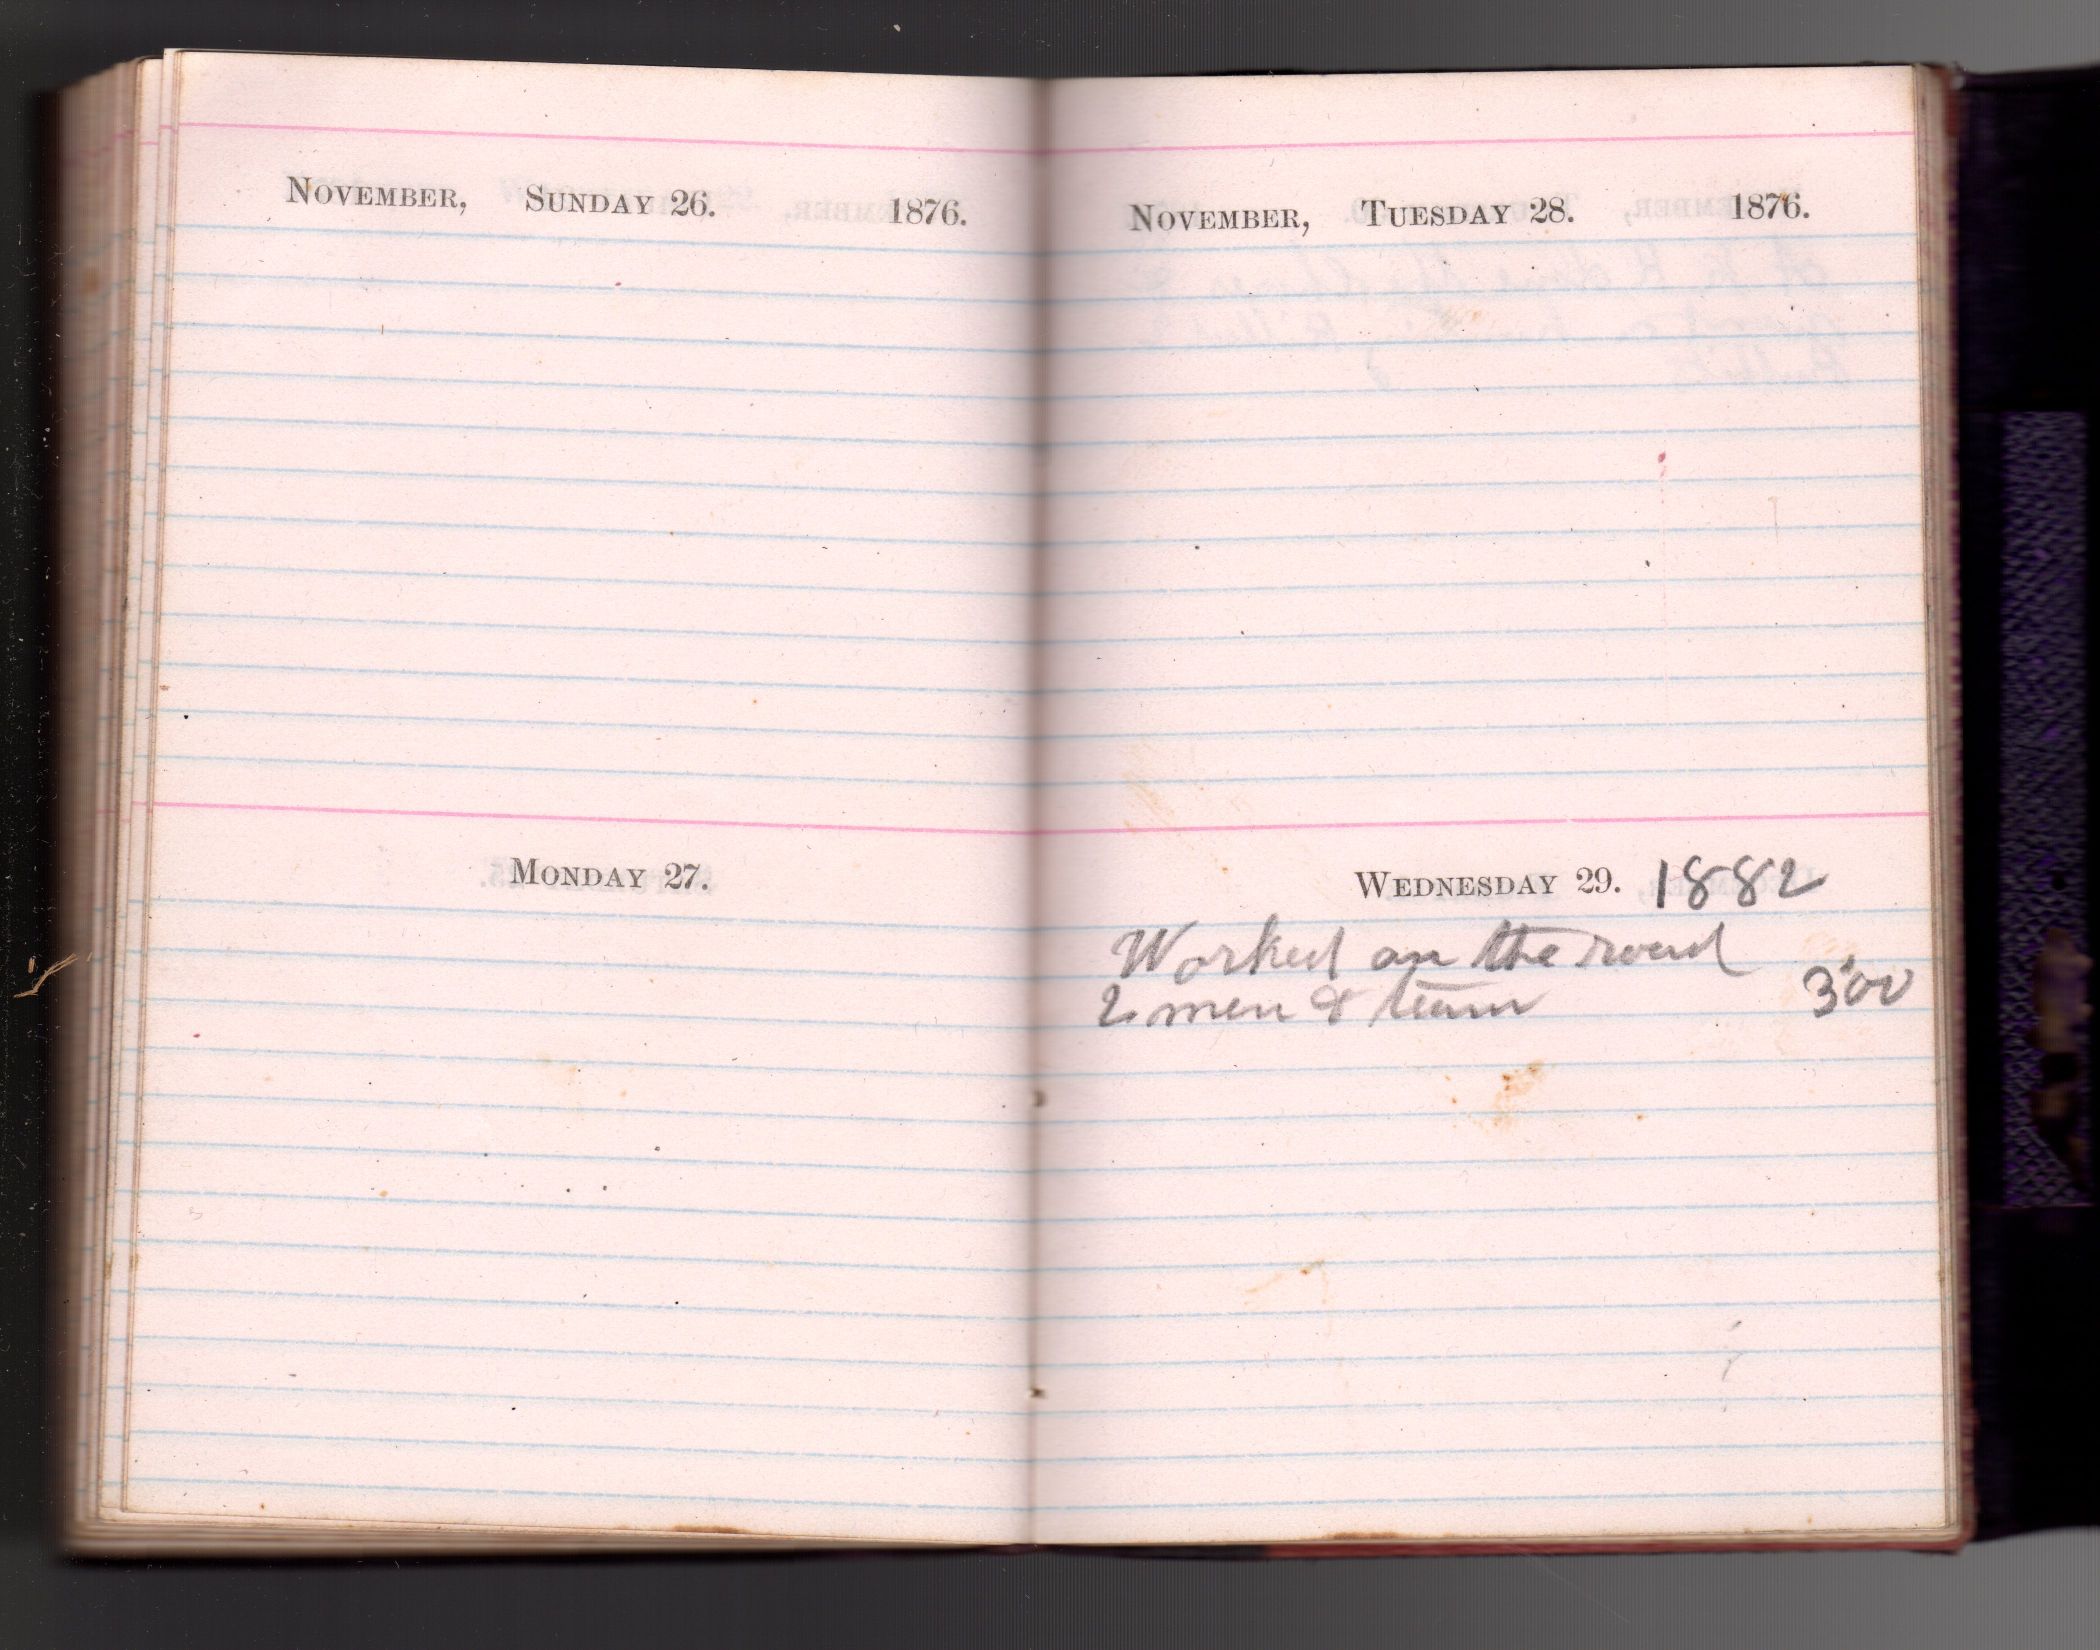 NOVEMBER, SUNDAY 26. 1876.
MONDAY 27.
NOVEMBER, TUESDAY 28. 1876.
WEDNESDAY 29. 1882
Worked on the road
2 men & team 3.00